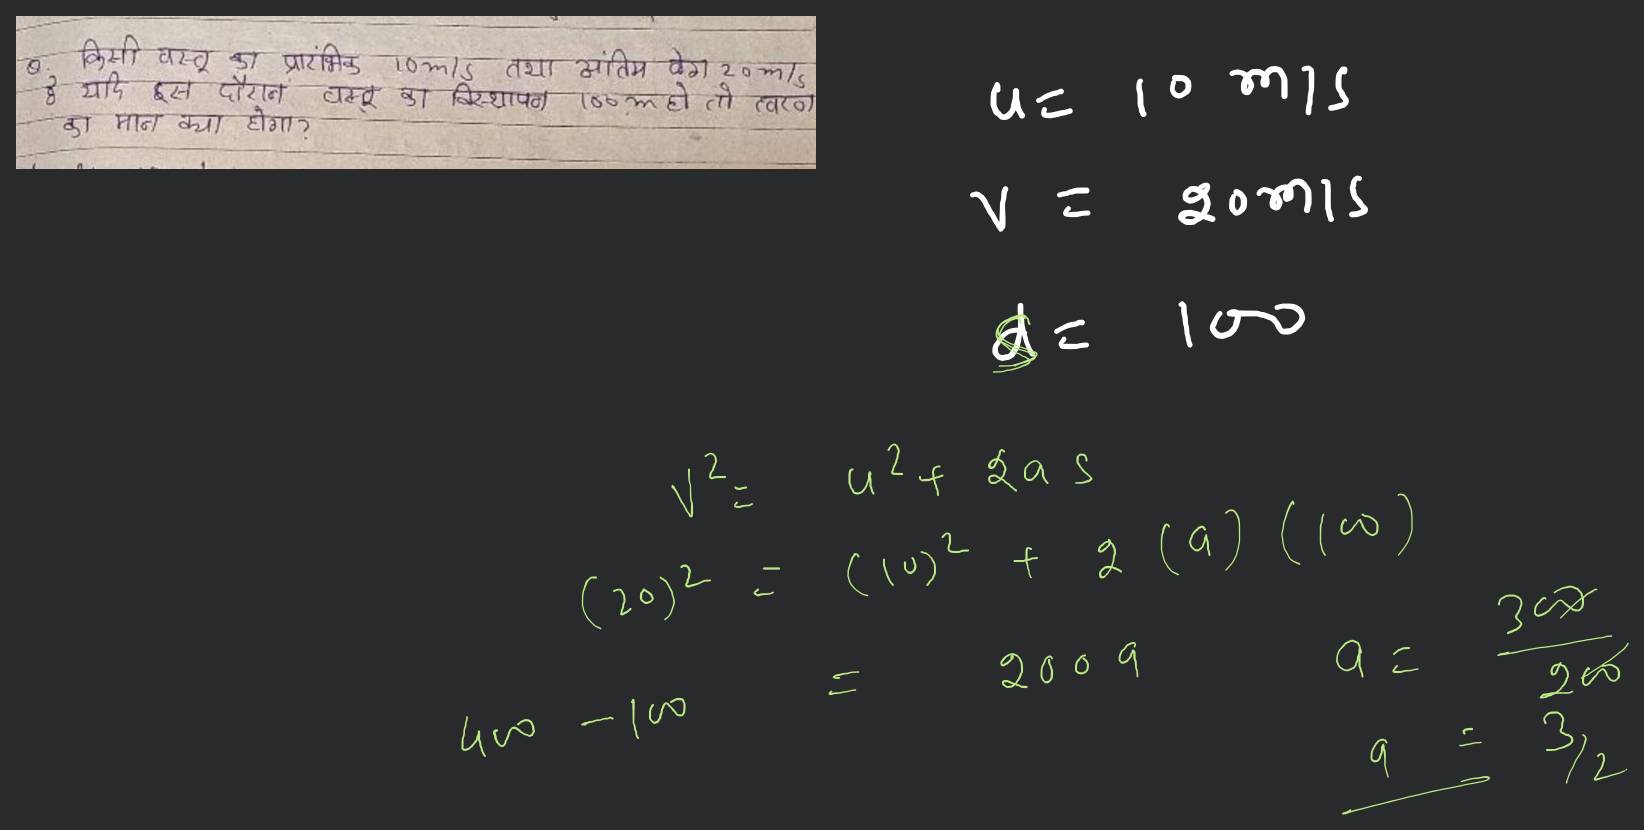 Q. किसी वस्तू का प्रारंभिक 10m/s तथा अंतिम वेग 20m/s
है यदि इस दौरान वस्तू का विस्थापन 100m हो तो त्वरण
का मान क्या होगा?
u = 10 m/s
v = 20m/s
s = 100
v² = u² + 2as
(20)² = (10)² + 2 (a) (100)
400 - 100 = 200a
a = 300/200
a = 3/2